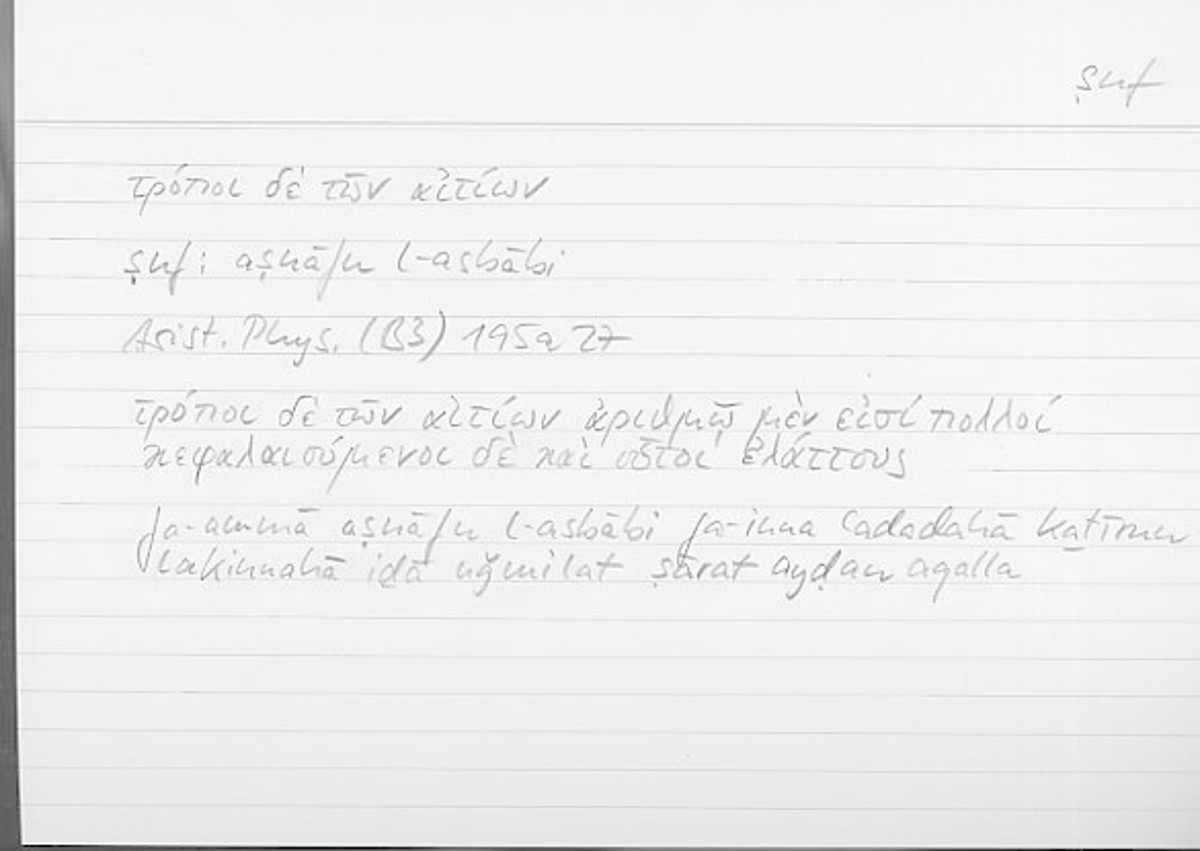 ṣnf
τρόποι δὲ τῶν αἰτίων
ṣnf: aṣnāfu l-asbābi
Arist. Phys. (B3) 195a27
τρόποι δὲ τῶν αἰτίων ἀριθμῷ μὲν εἰσί πολλοί
κεφαλαιούμενοι δὲ καὶ οὗτοι ἐλάττους
fa-ammā aṣnāfu l-asbābi fa-inna ʿadadahā kaṯīrun
lakinnahā iḏā uǧmilat ṣārat ayḍan aqalla